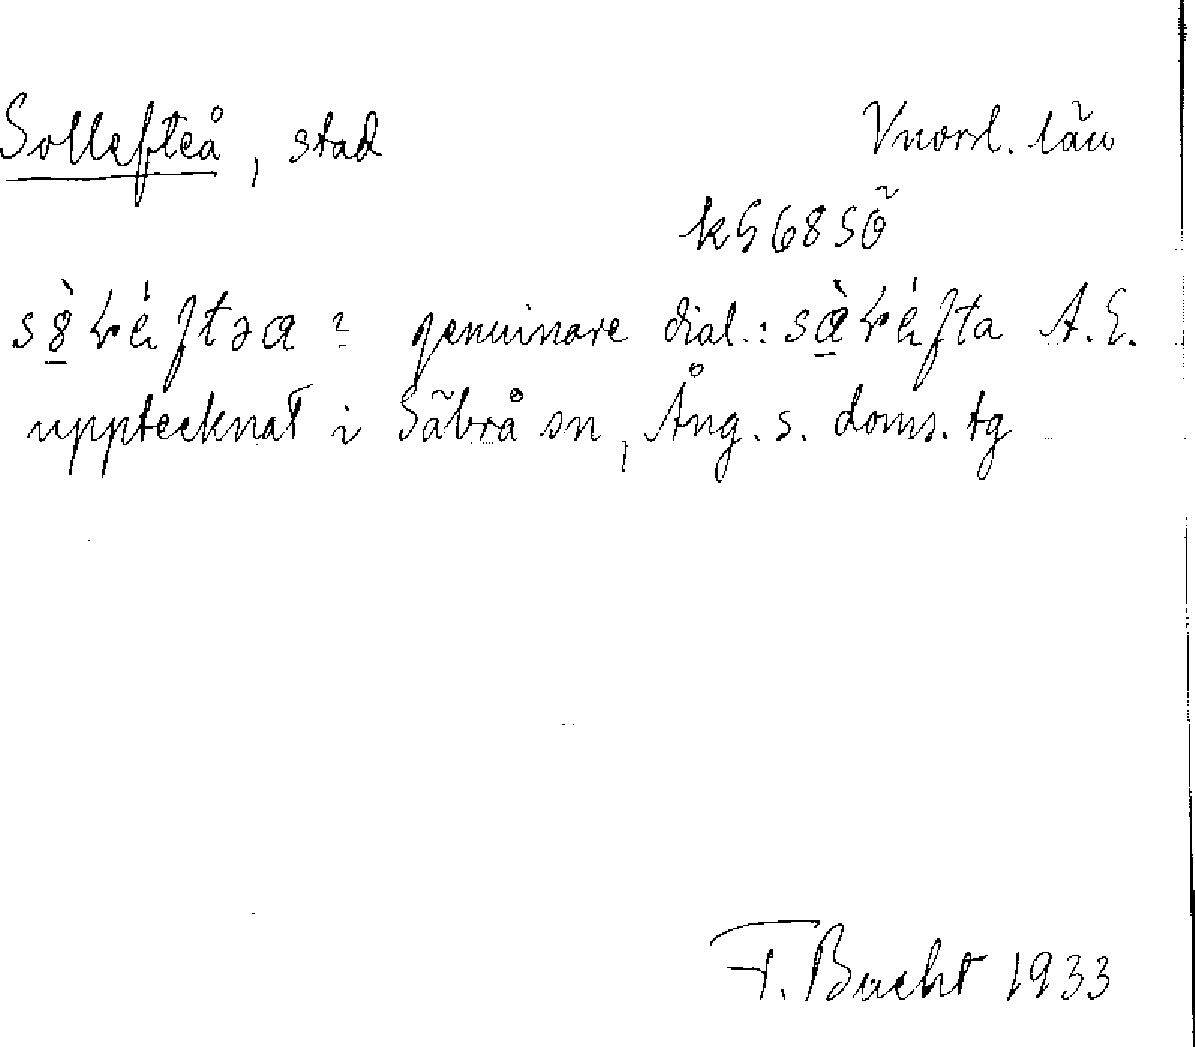 Sollefteå, stad Vnorrl. län
k5685ö
upptecknat i Säbrå sn, Ång. s. doms. tg
genuinare dial.: A. E.
T. Bucht 1933